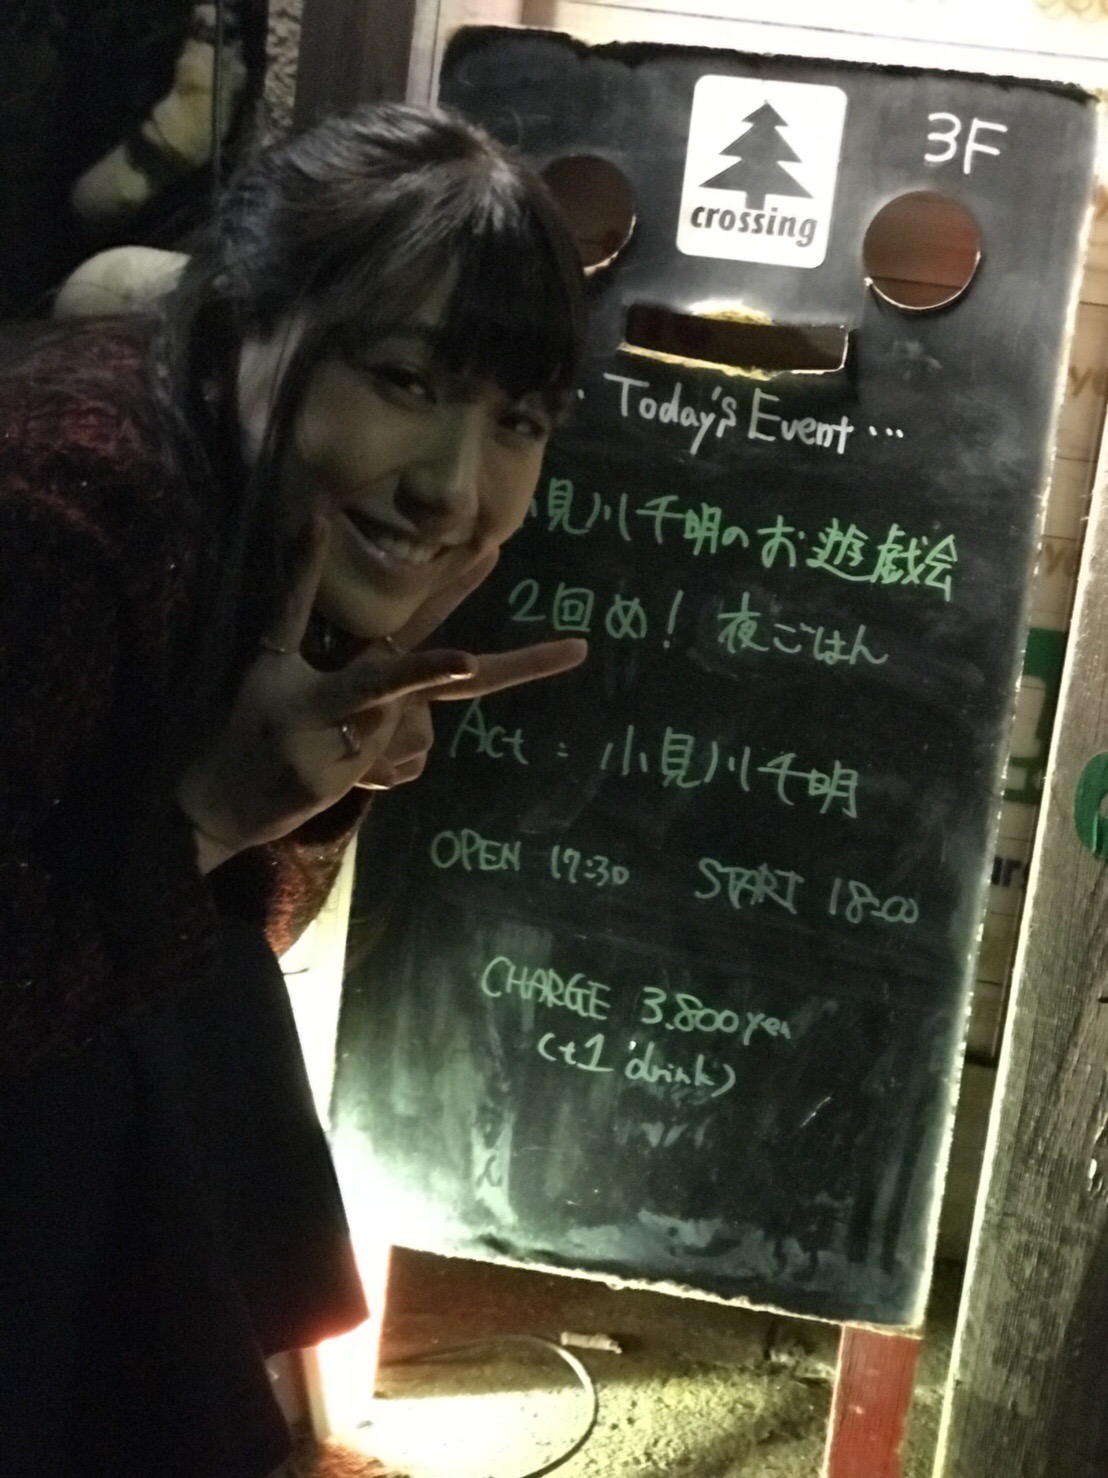 3F
crossing
Today's Event ...
小見川千明のお遊戯会
2回め! 夜ごはん
Act : 小見川千明
OPEN 17:30 START 18:00
CHARGE 3.800yen
(+1 drink)